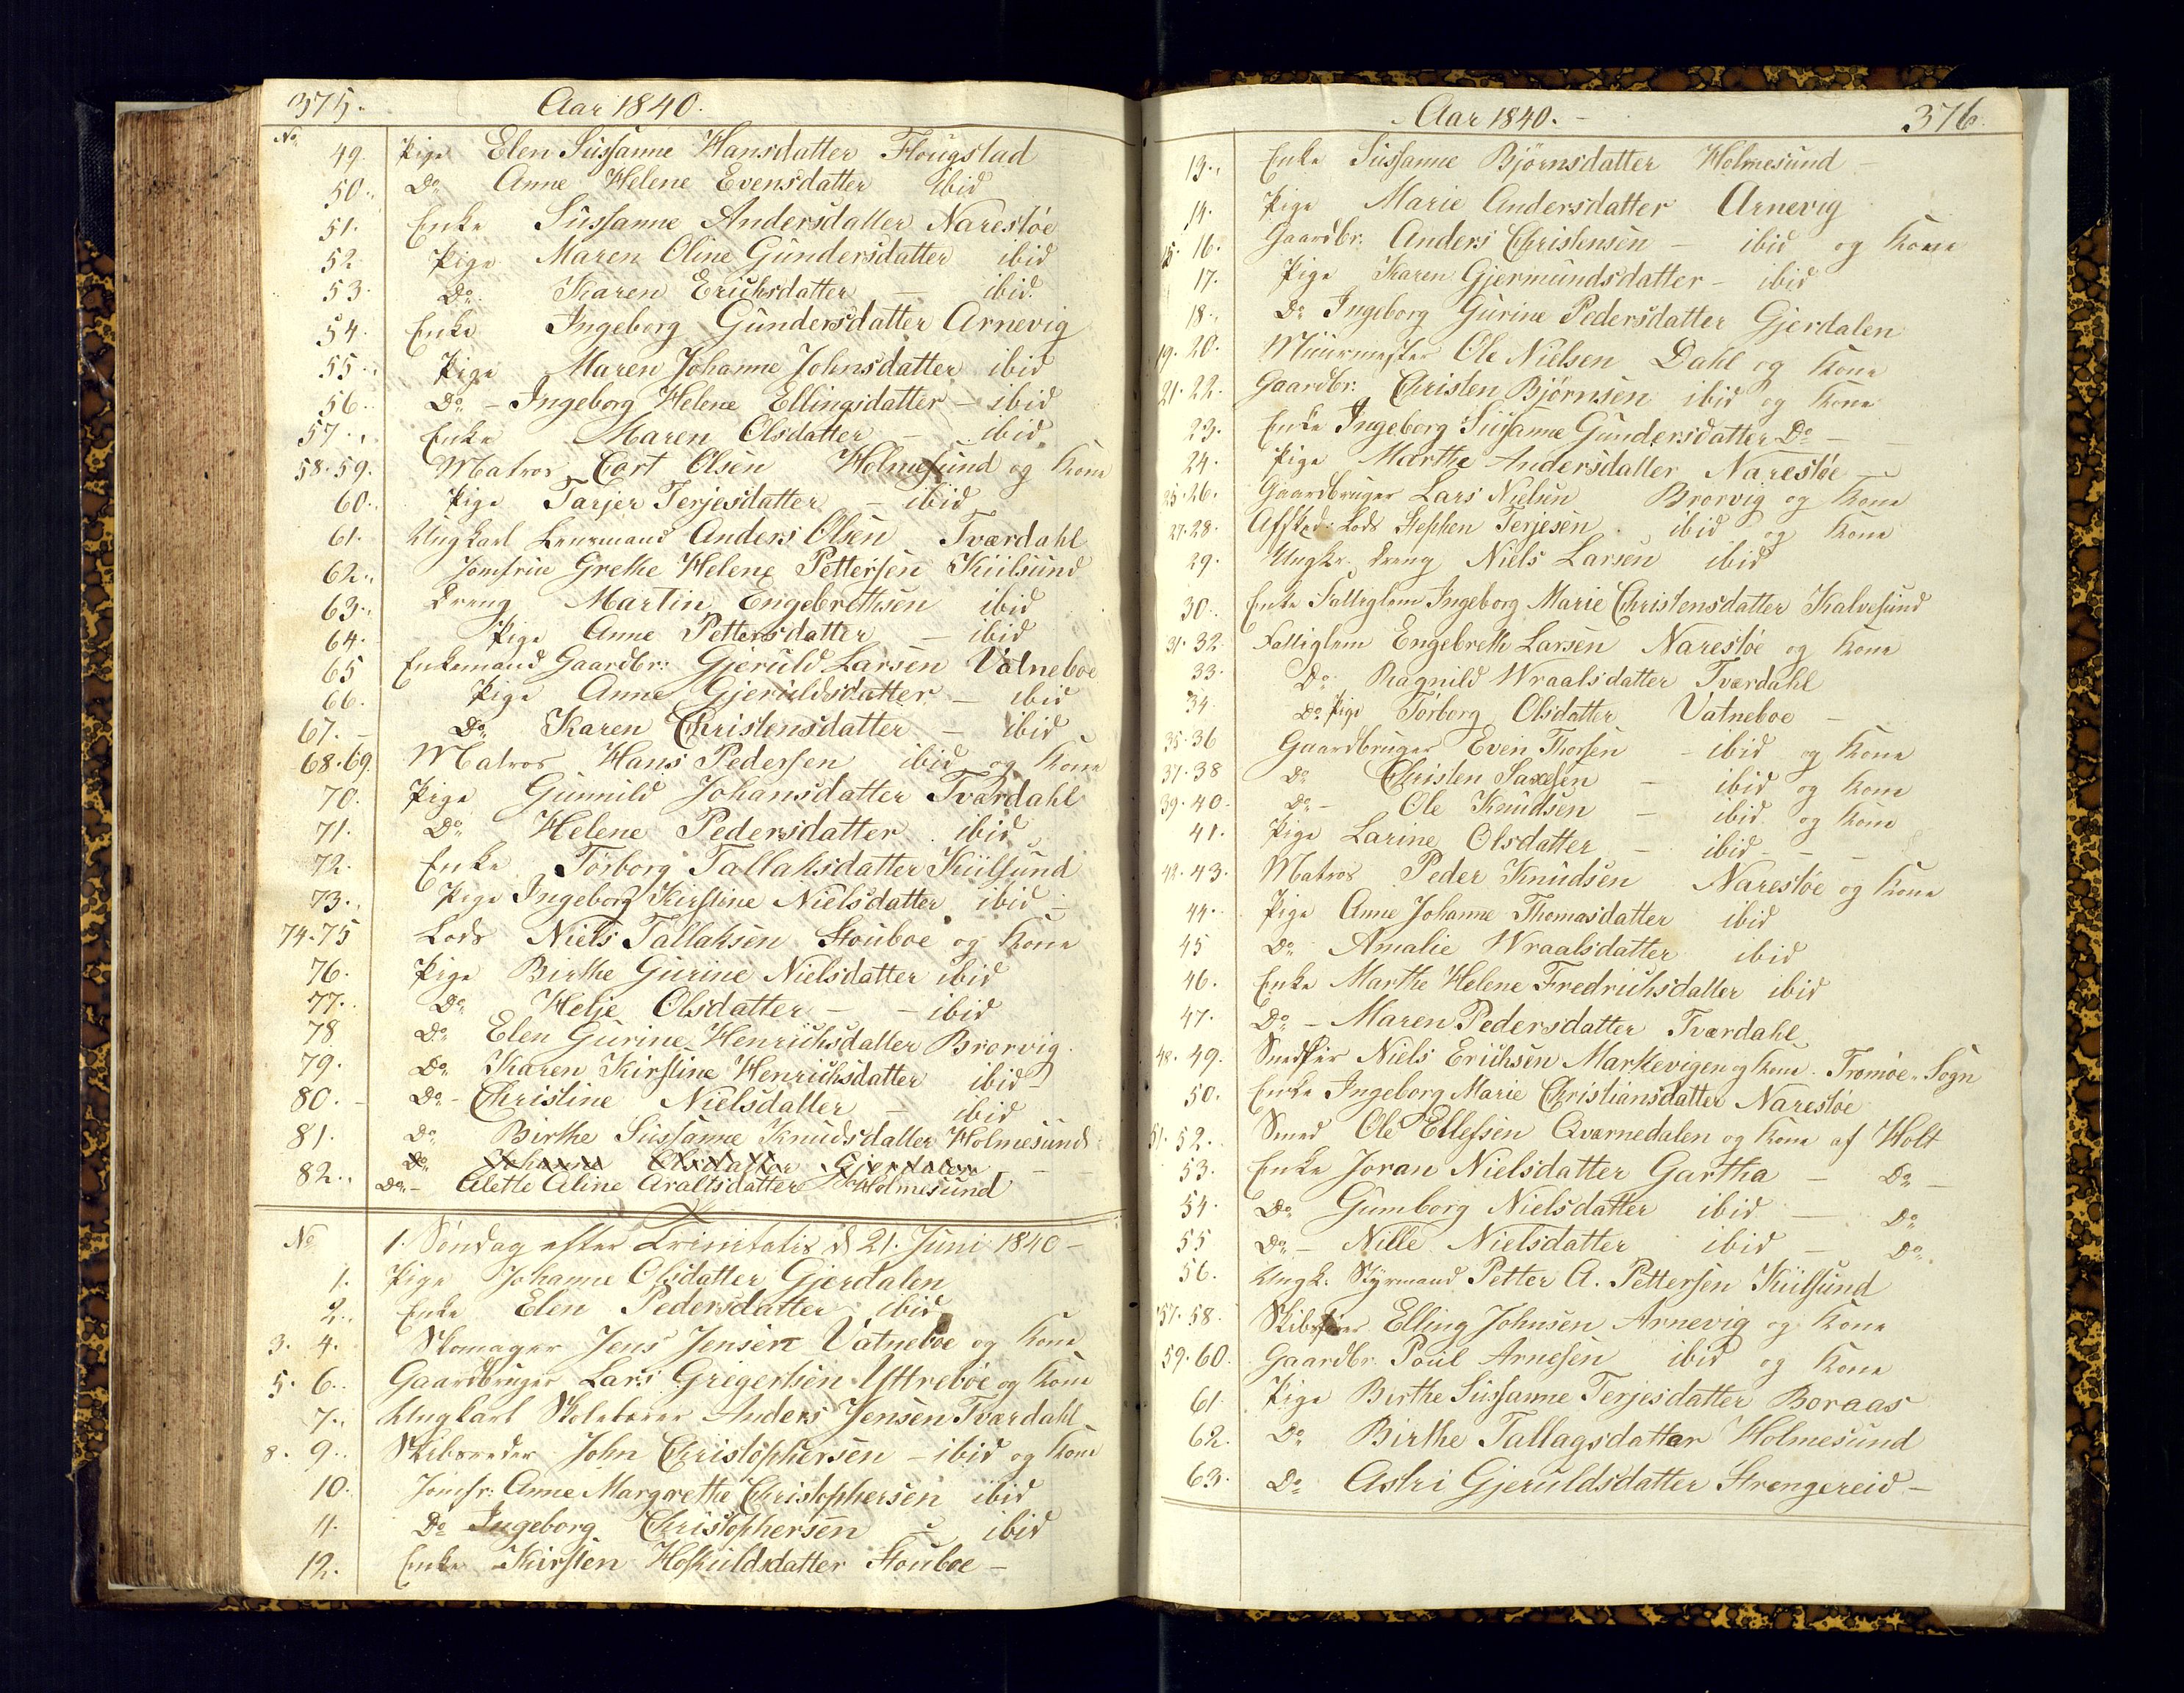 375.
Aar 1840.
No
49. Pige Elen Sussanne Hansdatter Flougstad
50. Do Anne Helene Evensdatter ibid
51. Enke Sussanne Andersdatter Narestøe
52. Pige Maren Oline Gundersdatter ibid
53. Do Karen Erichsdatter – ibid.
54. Enke Ingeborg Gundersdatter Arnevig
55. Pige Maren Johanne Johnsdatter ibid
56. Do – Ingeborg Helene Ellingsdatter – ibid
57. Enke Maren Olsdatter – ibid
58. 59. Matros Cort Olsen Holmesund og Kone
60. Pige Tarjer Terjesdatter – ibid
61. Ungkarl Lensmand Anders Olsen Tværdahl
62. Jomfrue Grethe Helene Pettersen Kiilsund
63. Dreng Martin Engebrethsen ibid
64. Pige Anne Pettersdatter – ibid
65 Enkemand Gaardbr: Gjeruld Larsen Vatneboe
66. Pige Anne Gjeruldsdatter – ibid
67. – Do Karen Christensdatter – ibid
68. 69. Matros Hans Pedersen ibid og Kone
70. Pige Gunnild Johansdatter Tværdahl
71. Do Helene Pedersdatter ibid
72. Enke Torborg Tallaksdatter Kiilsund
73. Pige Ingeborg Kirstine Nielsdatter ibid –
74-75 Lods Niels Tallaksen Stouboe og Kone
76. Pige Birthe Gurine Nielsdatter ibid
77. Do Helje Olsdatter – – ibid
78 Do Elen Gurine Henrichsdatter Brorvig.
79. Do Karen Kirstine Henrichsdatter ibid –
80. – Do – Christine Nielsdatter – ibid
81. Do Birthe Sussanne Knudsdatter Holmesund
Do Johanne Olsdatter Gjerdalen
82. Do – Alette Aline Araltsdatter Holmesund
No 1. Søndag efter Trinitatis d 21. Juni 1840 –
1. Pige Johanne Olsdatter Gjerdalen
2. Enke Elen Pedersdatter ibid
3. 4. Skomager Jens Jensen Vatneboe og Kone
5. 6. Gaardbruger Lars Gregersen Yttreboe og Kone
7. Ungkarl Skolelærer Anders Jensen Tværdahl
8. 9. Skibsreder John Christophersen – ibid og Kone
10. Jomfr: Anne Margrethe Christophersen ibid
11. Do Ingeborg Christophersen – ibid
12. Enke Kirsten Hoskuldsdatter Stouboe –
Aar 1840. –
376.
13. Enke Sussanne Bjørnsdatter Holmesund –
14. Pige Marie Andersdatter Arnevig
15. 16. Gaardbr. Anders Christensen – ibid og Kone
17. Pige Karen Gjermundsdatter – ibid
18. Do Ingeborg Gurine Pedersdatter Gjerdalen
19. 20. Muurmester Ole Nielsen Dahl og Kone
21. 22. Gaardbr: Christen Bjørnsen ibid og Kone
23. Enke Ingeborg Susanne Gundersdatter Do –
24. Pige Marthe Andersdatter Narestøe –
25. 26. Gaardbruger Lars Nielsen Brorvig og Kone
27. 28. Afsked: Lods Stephen Terjesen ibid og Kone
29. Ungkr. Dreng Niels Larsen ibid
30. Enke Fattiglem Ingeborg Marie Christensdatter Kalvesund
31. 32 Fattiglem Engebreth Larsen Narestøe og Kone
33. Do Ragnild Wraalsdatter Tværdahl
34. Do Pige Torborg Olsdatter Vatneboe –
35. 36 Gaardbruger Even Thorsen – ibid og Kone
37. 38 Do Christen Saxesen – ibid og Kone
39. 40. Do – Ole Knudsen – ibid og Kone
41. Pige Larine Olsdatter – ibid – –
42. 43. Matros Peder Knudsen Narestøe og Kone
44. Pige Anne Johanne Thomasdatter ibid
45 Do Amalie Wraalsdatter ibid
46. Enke Marthe Helene Fredrichsdatter ibid
47. Do – Maren Pedersdatter Tværdahl
48. 49. Niels Erichsen Markevigen og Kone. Tromøe Sogn
50. Enke Ingeborg Marie Christiansdatter Narestøe
51. 52. Smed Ole Ellefsen Qværnedalen og Kone af Holt
53. Enke Joran Nielsdatter Gartha – Do –
54. Do Gumborg Nielsdatter ibid – Do
55 Do – Nille Nielsdatter ibid – Do
56. Ungk. Styrmand Petter A. Pettersen Kiilsund
57. 58. Elling Johnsen Arnevig og Kone
59. 60. Gaardbr. Poul Arnesen ibid og Kone
61. Pige Birthe Sussanne Terjesdatter Boraas
62. Do Birthe Tallagsdatter Holmesund
63. Do Astri Gjeruldsdatter Strengereid –